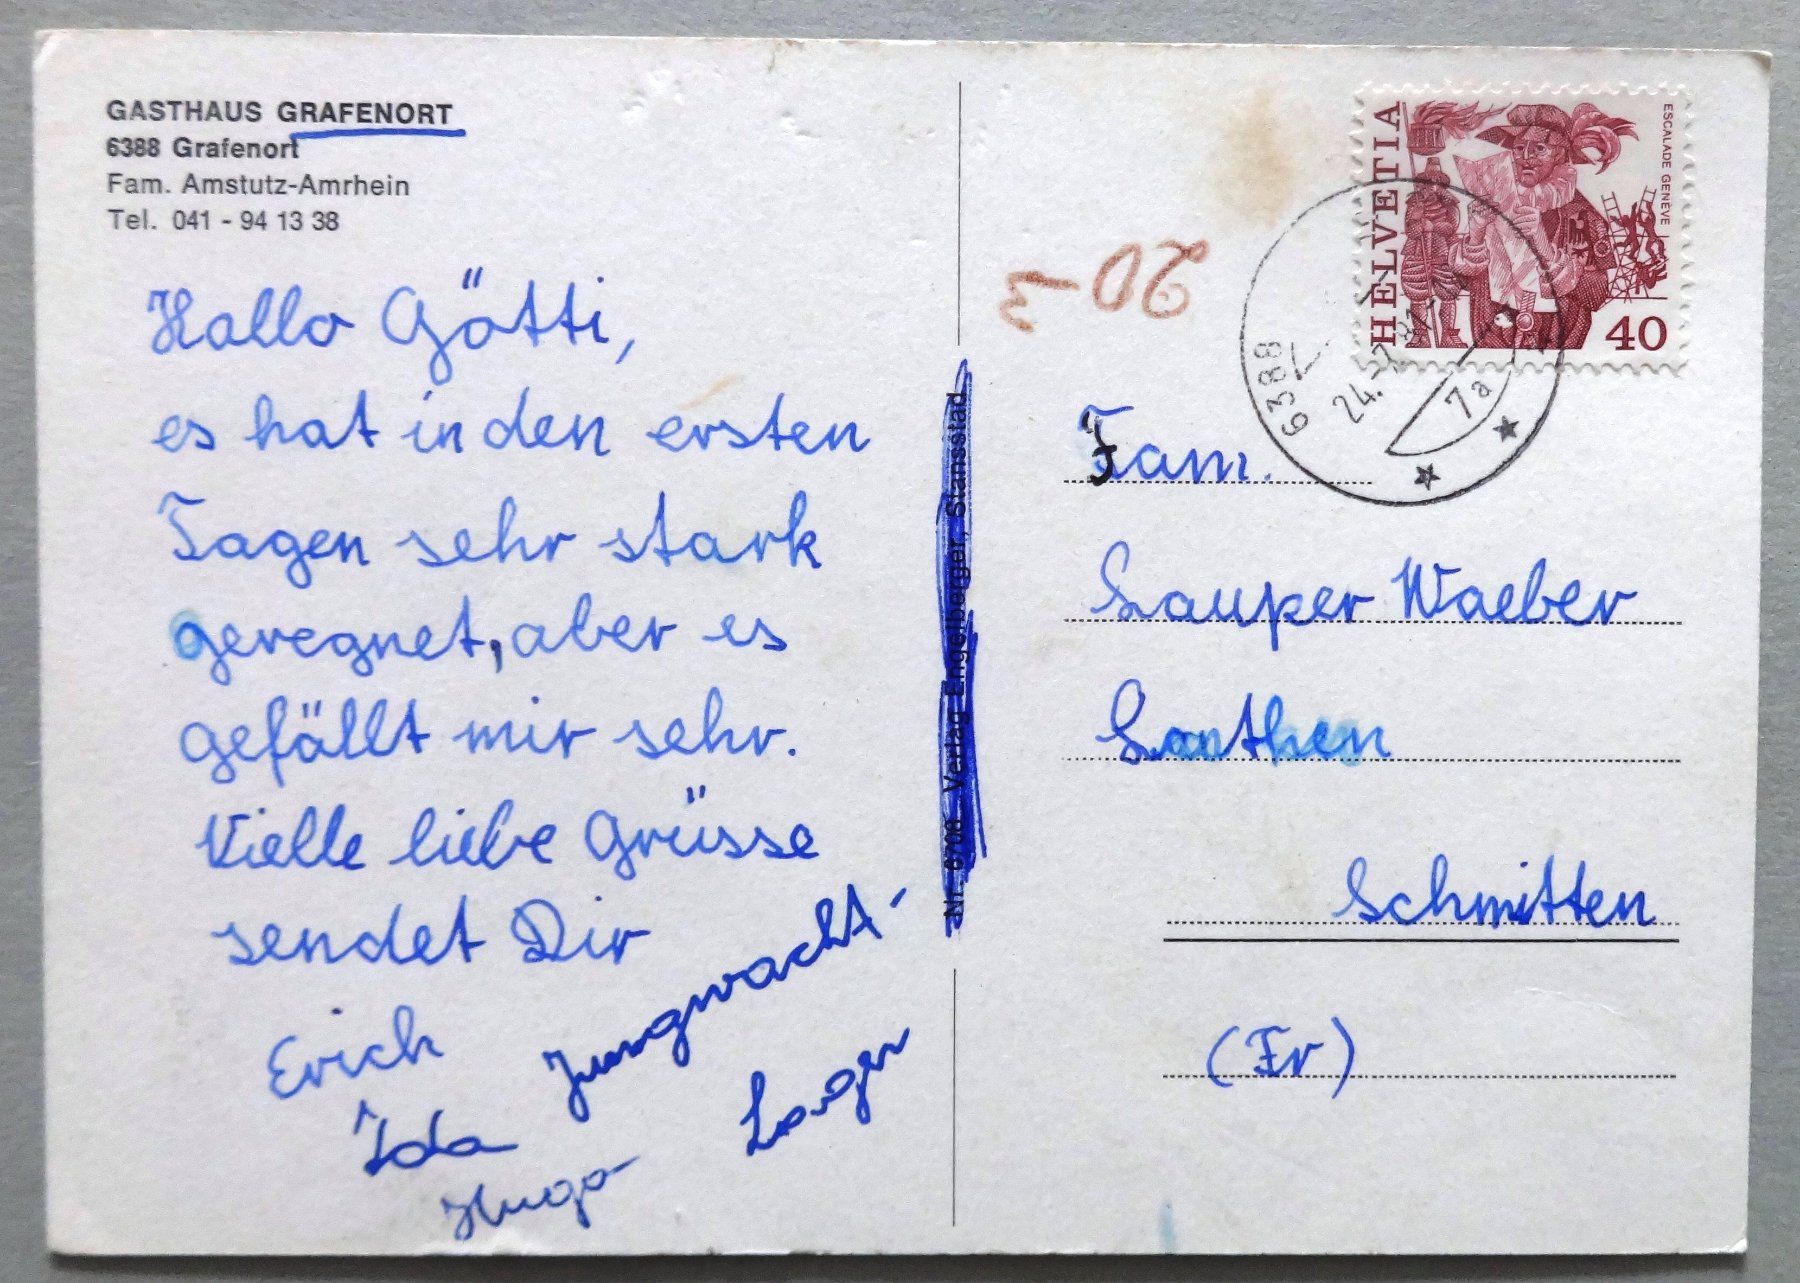 GASTHAUS GRAFENORT
6388 Grafenort
Fam. Amstutz-Amrhein
Tel. 041 - 94 13 38
Hallo Götti,
es hat in den ersten
Tagen sehr stark
geregnet, aber es
gefällt mir sehr.
Vielle liebe Grüsse
sendet Dir
Erich
Jungwacht-
Lager
Ida
Hugo
Nr. 6708 Verlag Engelberger, Stansstad
20-3
HELVETIA
ESCALADE GENÈVE
40
6388
24.
7a
Fam.
Lauper Waeber
Lanthen
Schmitten
(Fr)